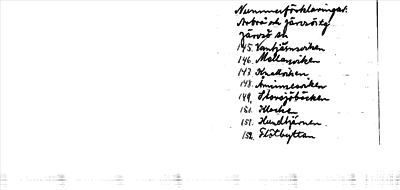 Nummerförklaringar.
Arbrå och Järvsö tg
Järvsö sn
145. Vantjärnsviken
146. Mellanviken
147. Knallviken
148. Åminneviken
149. Storsjöbäcken
151. Hundtjärnen
152. Flötbyttan